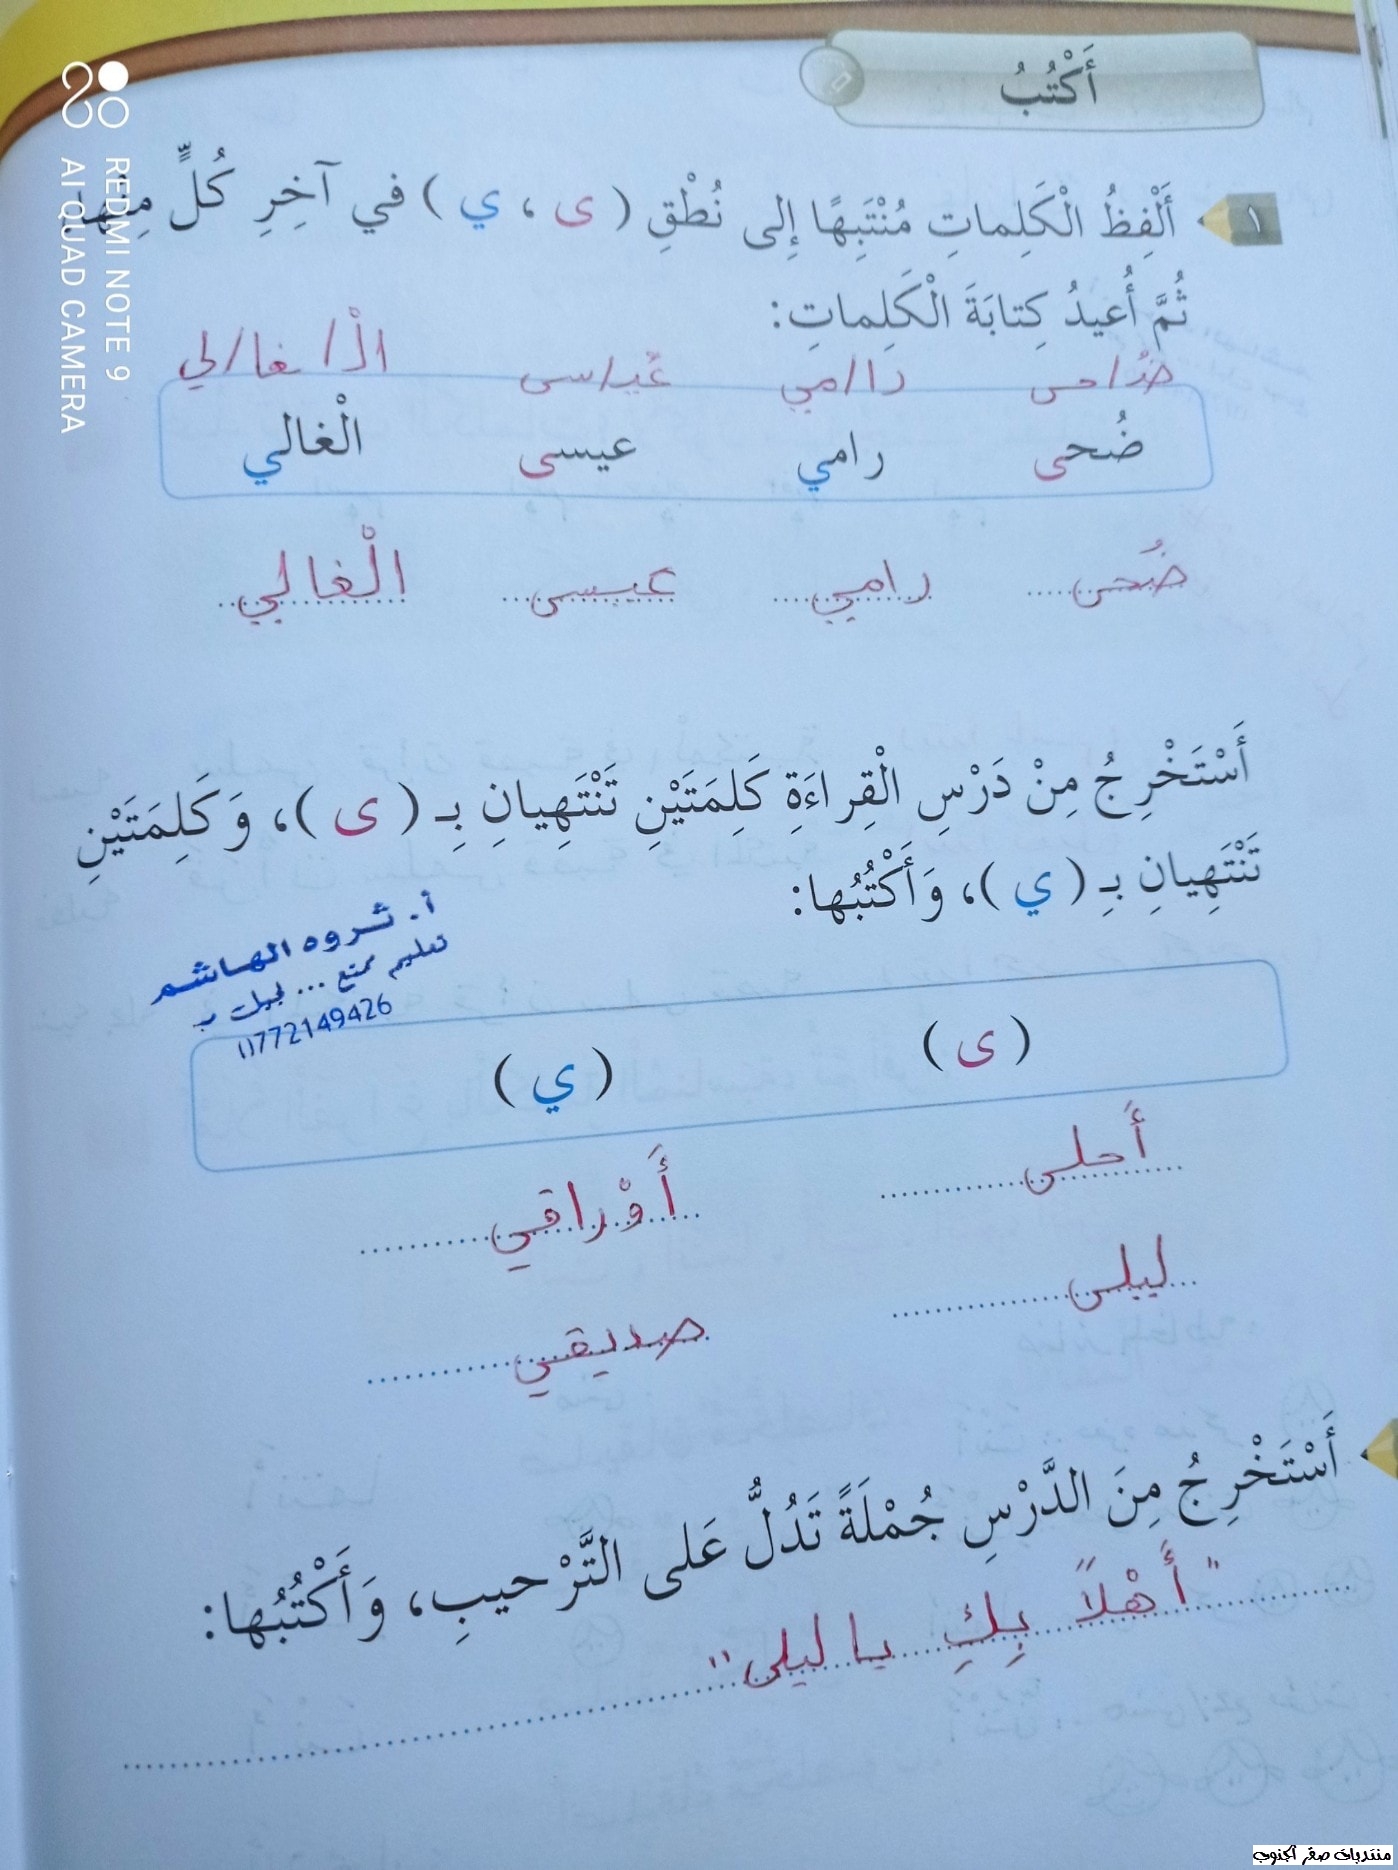 أَكْتُبُ
١ أَلْفِظُ الْكَلِماتِ مُنْتَبِهًا إِلى نُطْقِ ( ى ، ي ) في آخِرِ كُلٍّ مِنْها
ثُمَّ أُعيدُ كِتابَةَ الْكَلِماتِ:
ضُ/حى را/مي الْ/غا/لي
ضُحى رامي عيسى الْغالي
ضُحى رامي عيسى الْغالي
أَسْتَخْرِجُ مِنْ دَرْسِ الْقِراءَةِ كَلِمَتَيْنِ تَنْتَهِيانِ بِـ ( ى )، وَكَلِمَتَيْنِ
تَنْتَهِيانِ بِـ ( ي )، وَأَكْتُبُها:
أ. ثروه الهاشم
تعليم ممتع ...
0772149426
( ى ) ( ي )
أَحلى أَوْراقي
ليلى صديقي
أَسْتَخْرِجُ مِنَ الدَّرْسِ جُمْلَةً تَدُلُّ عَلى التَّرْحيبِ، وَأَكْتُبُها:
" أَهْلاً بِكِ يا ليلى "
REDMI NOTE 9
AI QUAD CAMERA
منتديات صقر الجنوب